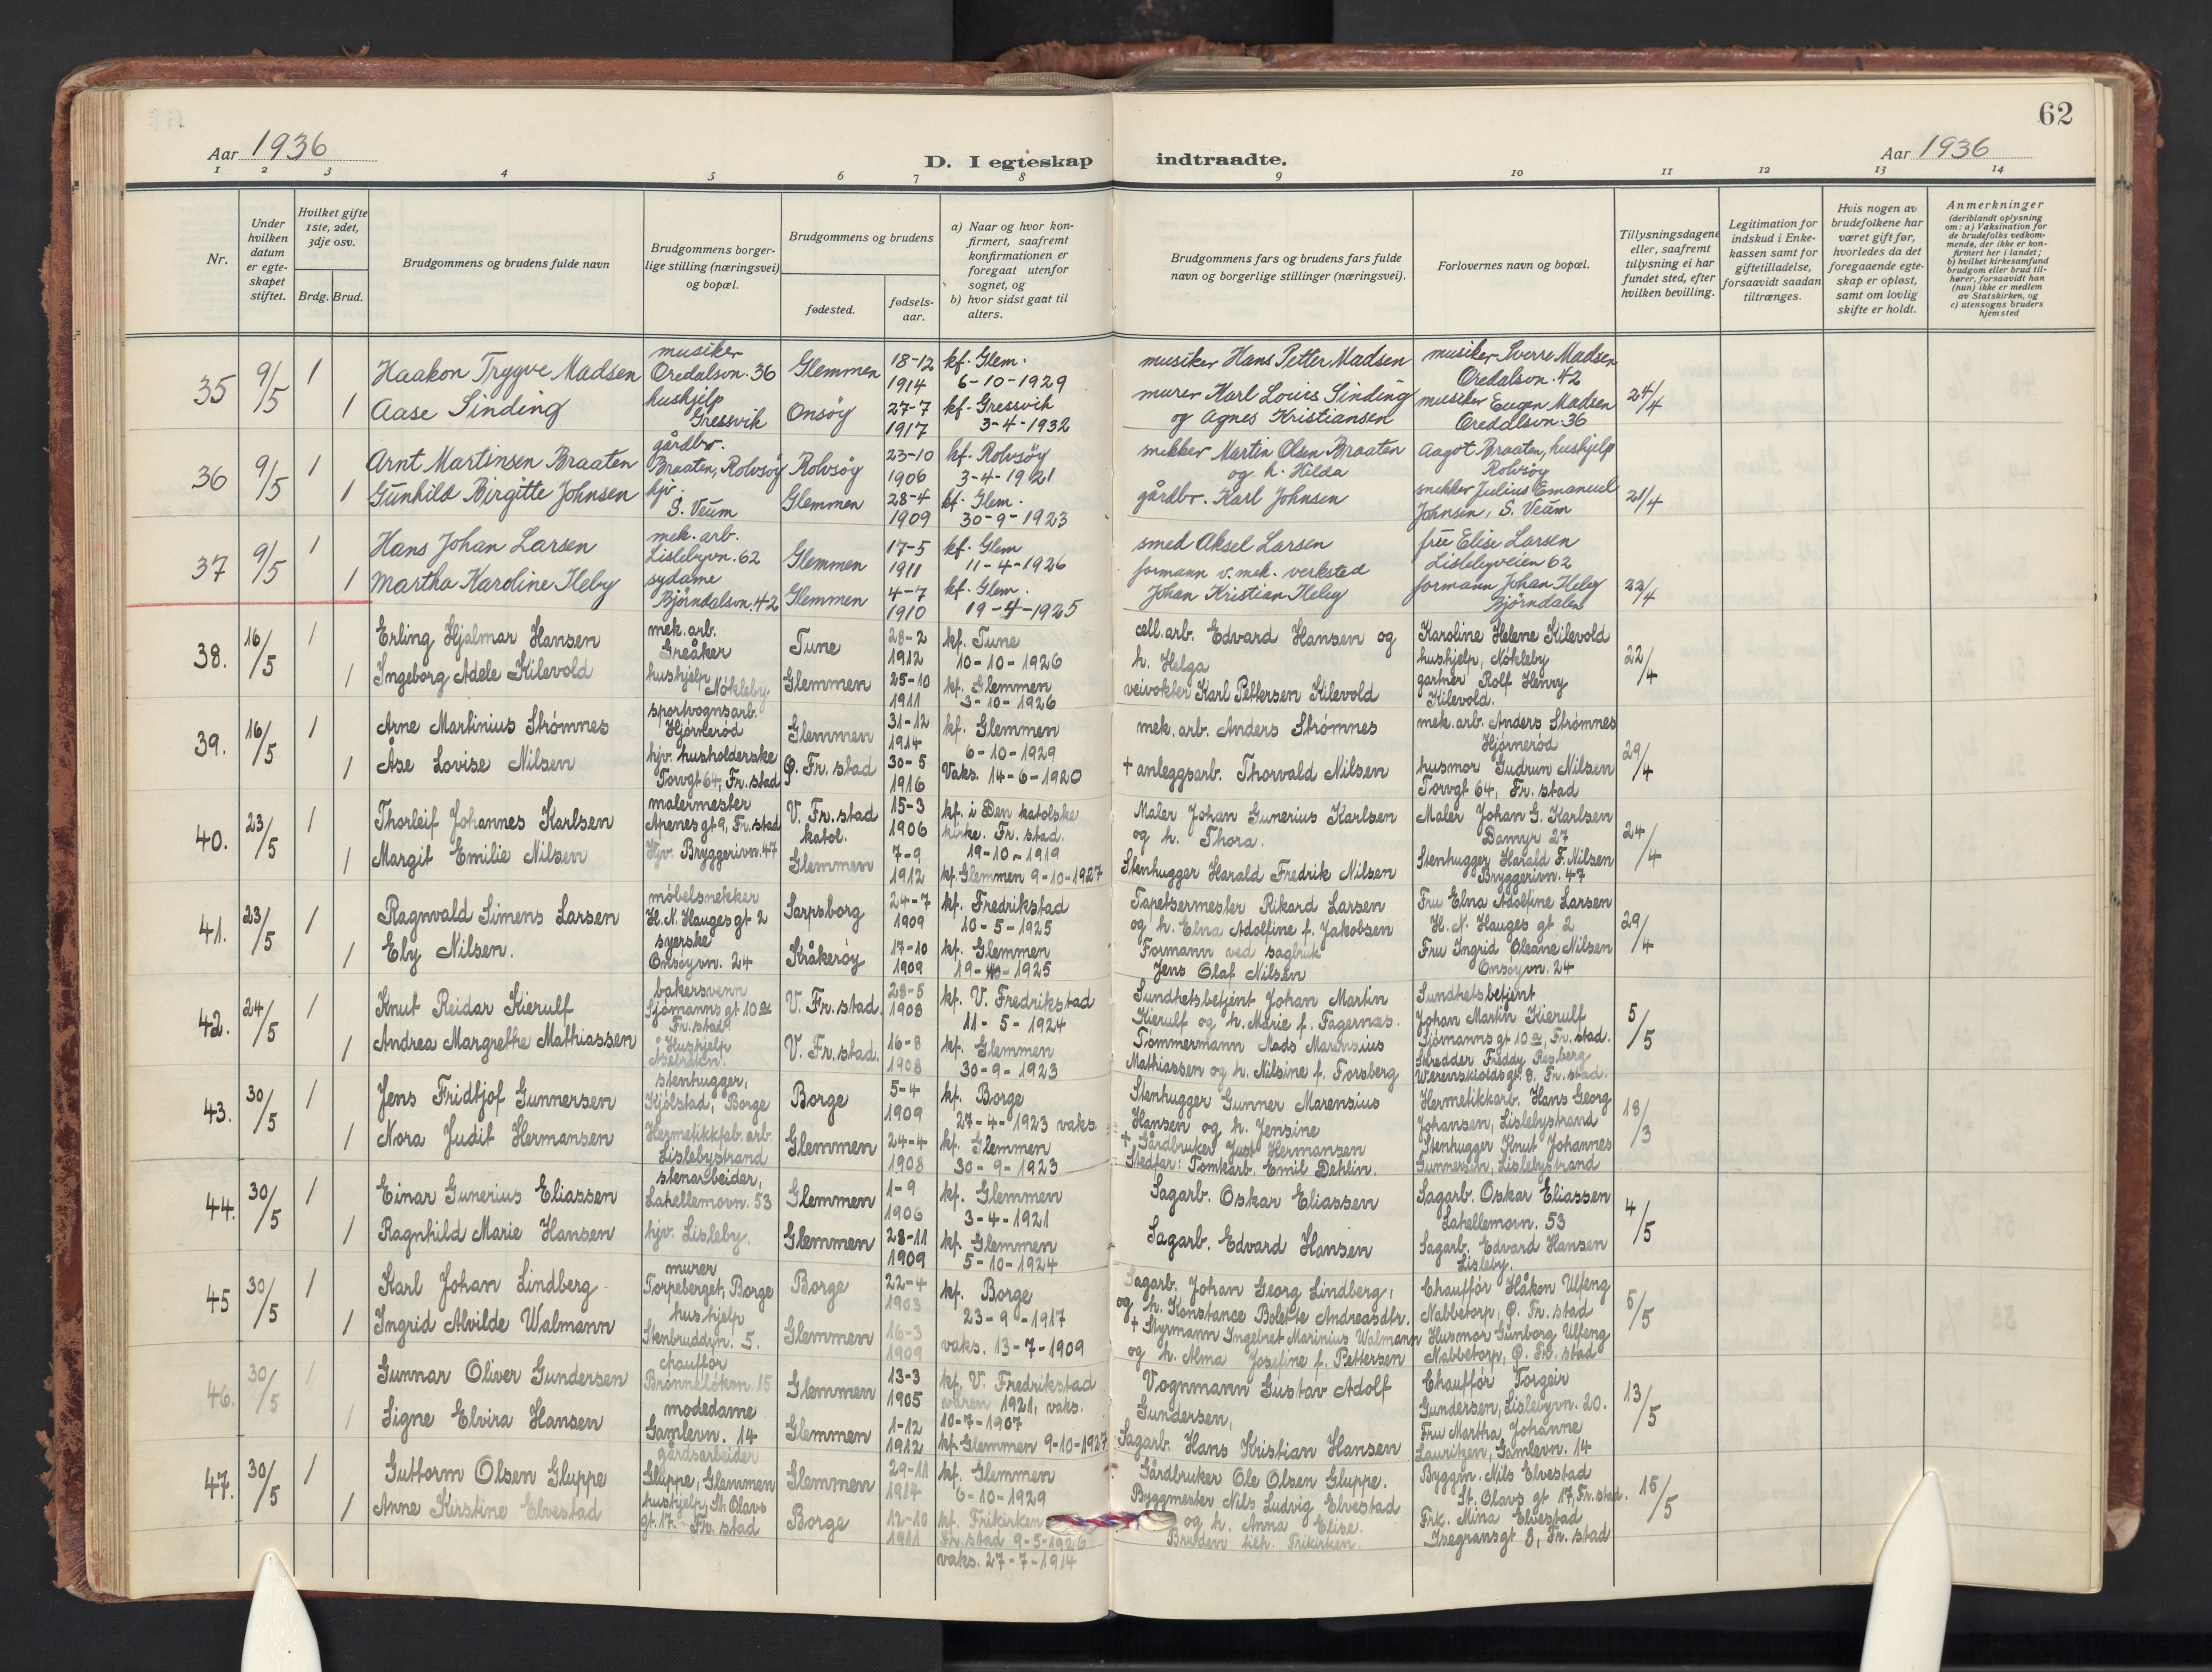 62
Aar 1936
D. I egteskap indtraadte.
Aar 1936
1 2 3 4 5 6 7 8 9 10 11 12 13 14
Nr.
Under hvilken datum er egteskapet stiftet.
Hvilket gifte 1ste, 2det, 3dje osv.
Brdg. Brud.
Brudgommens og brudens fulde navn
Brudgommens borgerlige stilling (næringsvei) og bopæl.
Brudgommens og brudens
fødested.
fødselsaar.
a) Naar og hvor konfirmert, saafremt konfirmationen er foregaat utenfor sognet, og
b) hvor sidst gaat til alters.
Brudgommens fars og brudens fars fulde navn og borgerlige stillinger (næringsvei).
Forlovernes navn og bopæl.
Tillysningsdagene eller, saafremt tillysning ei har fundet sted, efter hvilken bevilling.
Legitimation for indskud i Enkekassen samt for giftetilladelse, forsaavidt saadan tiltrænges.
Hvis nogen av brudefolkene har været gift før, hvorledes da det foregaaende egteskap er opløst, samt om lovlig skifte er holdt.
Anmerkninger
(deriblandt oplysning om: a) Vaksination for de brudefolks vedkommende, der ikke er konfirmert her i landet; b) hvilket kirkesamfund brudgom eller brud tilhører, forsaavidt han (hun) ikke er medlem av Statskirken, og c) utensogns bruders hjemsted
35 9/5 1 Haakon Trygve Madsen musiker Oredalsvn. 36 Glemmen 18-12 1914 kf. Glem. 6-10-1929 musiker Hans Petter Madsen musiker Sverre Madsen Oredalsvn. 42 24/4
1 Aase Sinding hushjelp Gressvik Onsöy 27-7 1917 kf. Gressvik 3-4-1932 murer Karl Louis Sinding og Agnes Kristiansen musiker Eugen Madsen Oredalsvn. 36
36 9/5 1 Arnt Martinsen Braaten gårdbr. Braaten, Rolvsöy Rolvsöy 23-10 1906 kf. Rolvsöy 3-4-1921 snekker Martin Olsen Braaten og h. Hilda Aagot Braaten, hushjelp Rolvsöy 21/4
1 Gunhild Birgitte Johnsen hjv. S. Veum Glemmen 28-4 1909 kf. Glem. 30-9-1923 gårdbr. Karl Johnsen snekker Julius Emanuel Johnsen, S. Veum
37 9/5 1 Hans Johan Larsen mek. arb. Lislebyvn. 62 Glemmen 17-5 1911 kf. Glem 11-4-1926 smed Aksel Larsen frue Elise Larsen Lislebyveien 62 22/4
1 Martha Karoline Heby sydame Bjørndalsvn. 42 Glemmen 4-7 1910 kf. Glem. 19-4-1925 formann v. mek. verksted Johan Kristian Heby formann Johan Heby Bjørndalen
38. 16/5 1 Erling Hjalmar Hansen mek. arb. Greåker Tune 28-2 1912 kf. Tune 10-10-1926 cell. arb. Edvard Hansen og h. Helga Karoline Helene Kilevold hushjelp, Nökleby 22/4
1 Ingeborg Adele Kilevold hushjelp Nökleby Glemmen 25-10 1911 kf. Glemmen 3-10-1926 veivokter Karl Pettersen Kilevold gartner Rolf Henry Kilevold.
39. 16/5 1 Arne Martinius Strømnes sportvognsarb. Hjørnerød Glemmen 31-12 1914 kf. Glemmen 6-10-1929 mek. arb. Anders Strømnes mek. arb. Anders Strømnes Hjørnerød 29/4
1 Åse Lovise Nilsen hjv. husholderske Torvgt 64, Fr. stad Ø. Fr. stad 30-5 1916 Vaks. 14-6-1920 + anleggsarb. Thorvald Nilsen husmor Gudrun Nilsen Torvgt 64, Fr. stad
40. 23/5 1 Thorleif Johannes Karlsen malermester Apenesgt 9, Fr. stad V. Fr. stad katol. 15-3 1906 kf. i Den katolske kirke. Fr. stad. 19-10-1919 Maler Johan Gunerius Karlsen og h. Thora. Maler Johan G. Karlsen Damyr 27 24/4
1 Margit Emilie Nilsen Hjv. Bryggerivn. 47 Glemmen 7-9 1912 kf. Glemmen 9-10-1927 Stenhugger Harald Fredrik Nilsen Stenhugger Harald F. Nilsen Bryggerivn. 47
41. 23/5 1 Ragnvald Simens Larsen møbelsnekker H. N. Hauges gt 2 Sarpsborg 24-7 1909 kf. Fredrikstad 10-5-1925 Tapetsermester Rikard Larsen og h. Elna Adolfine f. Jakobsen Fru Elna Adolfine Larsen H. N. Hauges gt 2 29/4
1 Eby Nilsen. syerske Onsøyvn. 24 Kråkerøy 17-10 1909 kf. Glemmen 19-10-1925 Formann ved sagbruk Jens Olaf Nilsen Fru Ingrid Oleane Nilsen Onsøyvn. 24
42. 24/5 1 Knut Reidar Kierulf bakersvenn Sjømanns gt 10a Fr. stad V. Fr. stad. 28-5 1908 kf. V. Fredrikstad 11-5-1924 Sundhetsbetjent Johan Martin Kierulf og h. Marie f. Fagernæs. Sundhetsbetjent Johan Martin Kierulf Sjømanns gt 10a, Fr. stad. 5/5
1 Andrea Margrethe Mathiassen Hushjelp V. Fr. stad. 16-8 1908 kf. Glemmen 30-9-1923 Tømmermann Mads Marensius Mathiassen og h. Nilsine f. Forsberg Skredder Freddy Resberg Werenskioldsgt. 8. Fr. stad.
43. 30/5 1 Jens Fridtjof Gunnersen stenhugger, Kjölstad, Borge Borge 5-4 1909 kf. Borge 27-4-1923 vaks. Stenhugger Gunner Marensius Hansen og h. Jensine Hermetikkarb. Hans Georg Johansen, Lislebystrand 18/3
1 Nora Judit Hermansen Hermetikkfab. arb. Lislebystrand Glemmen 24-4 1908 kf. Glemmen 30-9-1923 + Gårdbruker Just Hermansen Stedfar: Tomtearb. Emil Dehlin. Stenhugger Knut Johannes Gunnersen, Lislebystrand
44. 30/5 1 Einar Gunerius Eliassen stenarbeider, Lahellemovn. 53 Glemmen 1-9 1906 kf. Glemmen 3-4-1921 Sagarb. Oskar Eliassen Sagarb. Oskar Eliassen Lahellemovn. 53 4/5
1 Ragnhild Marie Hansen hjv. Lisleby. Glemmen 28-11 1909 kf. Glemmen 5-10-1924 Sagarb. Edvard Hansen Sagarb. Edvard Hansen Lisleby.
45 30/5 1 Karl Johan Lindberg murer Torpeberget, Borge Borge 22-4 1903 kf. Borge 23-9-1917 Sagarb. Johan Georg Lindberg, og h. Konstance Bolette Andreasdtr. Chauffør Håkon Ulfeng Nabbetorp, Ø. Fr. stad 5/5
1 Ingrid Alvilde Walmann hushjelp Stenbruddvn. 5. Glemmen 16-3 1909 vaks. 13-7-1909 + Styrmann Ingebret Marinius Walmann og h. Alma Josefine f. Pettersen Husmor Gunborg Ulfeng Nabbetorp, Ø. Fr. stad
46. 30/5 1 Gunnar Oliver Gundersen chauffør Brønneløkvn. 15 Glemmen 13-3 1905 kf. V. Fredrikstad våren 1921, vaks. 10-7-1907 Vognmann Gustav Adolf Gundersen, Chauffør Torgeir Gundersen, Lislebyvn. 20. 13/5
1 Signe Elvira Hansen modedame Gamlevn. 14 Glemmen 1-12 1912 kf. Glemmen 9-10-1927 Sagarb. Hans Kristian Hansen Fru Martha Johanne Lauritzen, Gamlevn. 14
47. 30/5 1 Guttorm Olsen Gluppe gårdsarbeider Gluppe, Glemmen Glemmen 29-11 1914 kf. Glemmen 6-10-1929 Gårdbruker Ole Olsen Gluppe. Byggm. Nils Elvestad St. Olavs gt 17, Fr. stad. 15/5
1 Anne Kirstine Elvestad hushjelp, St. Olavs gt. 17. Fr. stad Borge 12-10 1911 kf. Frikirken Fr. stad 9-5-1926 vaks. 27-7-1914 Byggmester Nils Ludvig Elvestad og h. Anna Elise. Bruden tilh. Frikirken. Frk. Mina Elvestad Isegransgt 8, Fr. stad